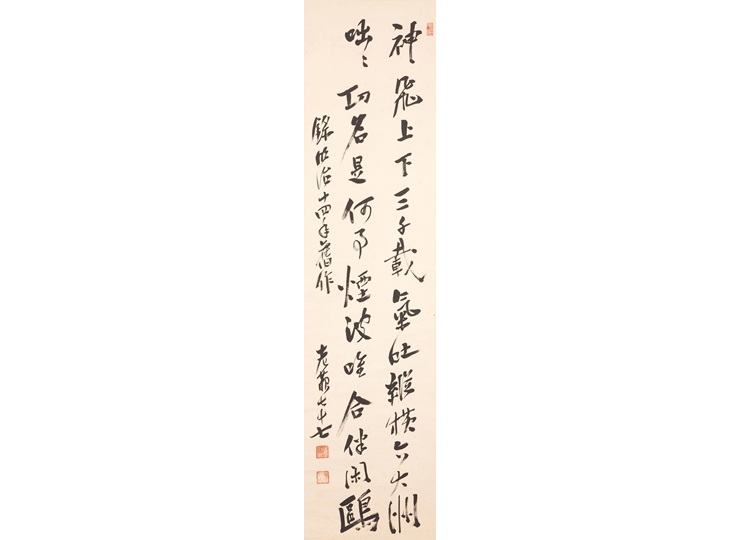 神飛上下三千載氣壮縦横六大洲
咄〻功名是何事煙波唯合伴閑鷗
錄明治十四年舊作
老蘇七十七